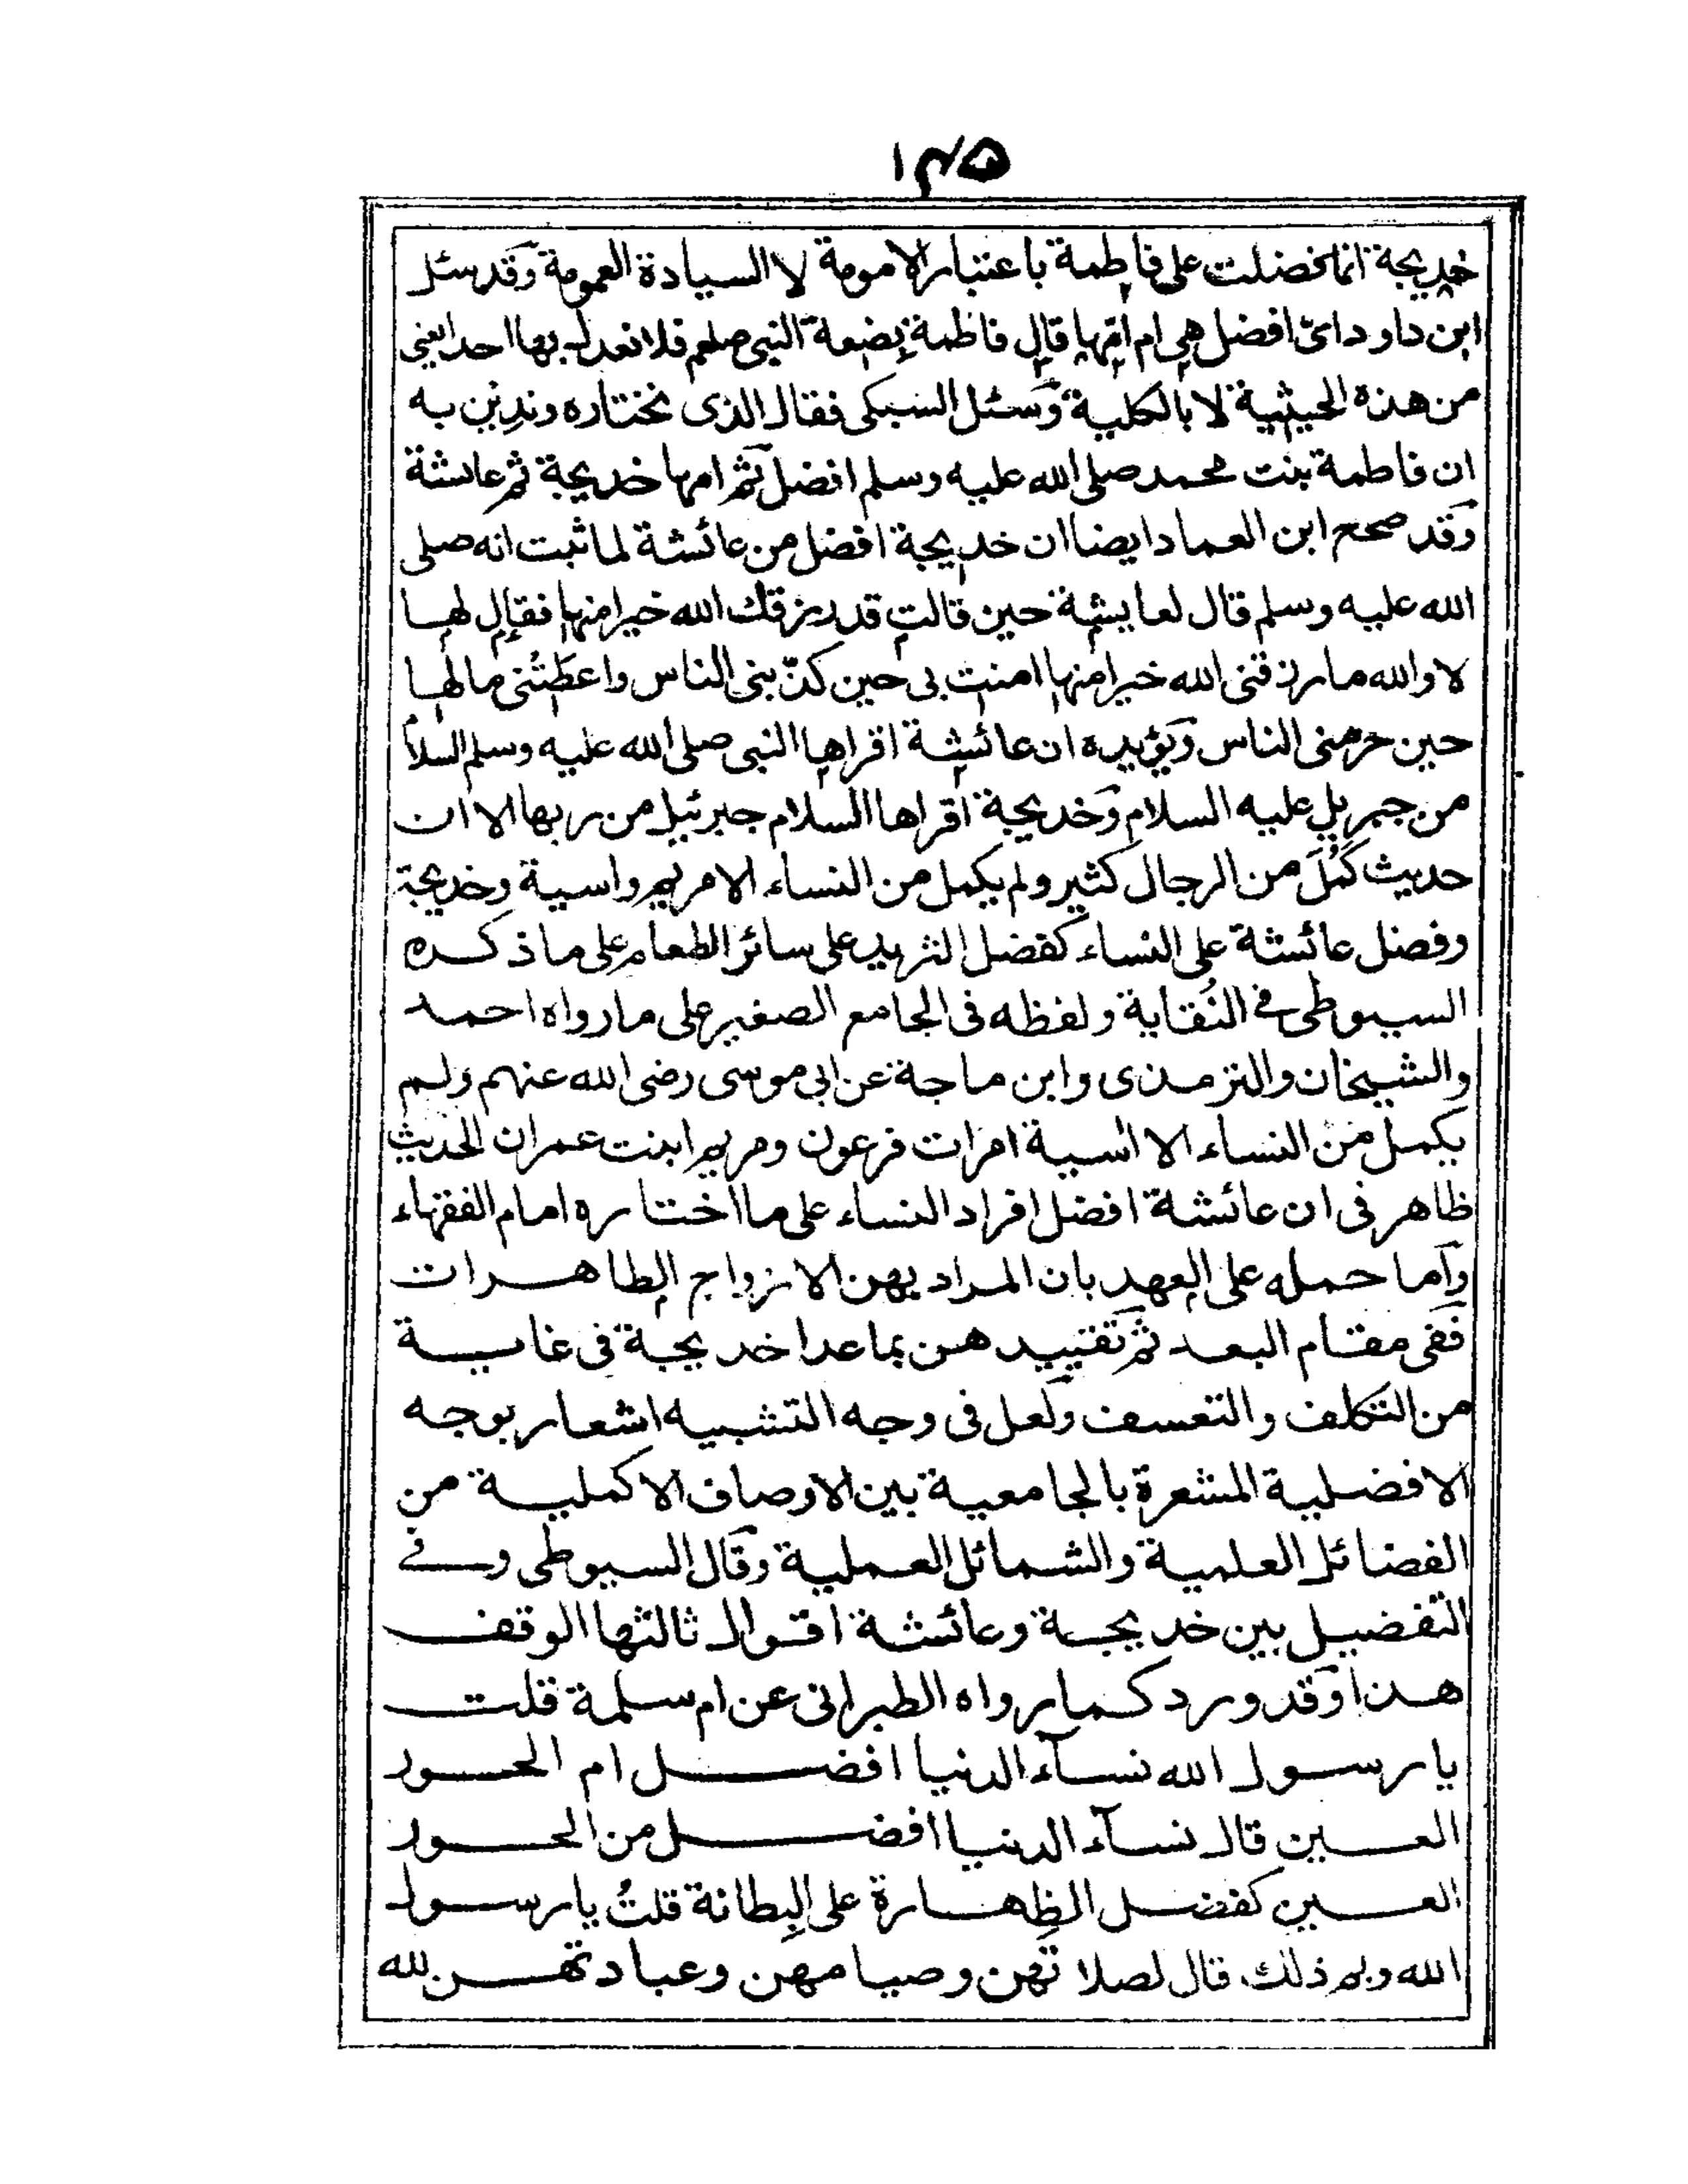 ١٣٥
خديجة انما فضلت على فاطمة باعتبار الامومة لا السيادة العمومة وقد سئل
ابن داود اىّ افضل هى ام امّها قال فاطمة بضعة النبى صلعم فلا نعدل بها احد ايعنى
من هذه الحيثية لا بالكلية وسئل السبكى فقال الذى نختاره وندين به
ان فاطمة بنت محمد صلى الله عليه وسلم افضل ثم امها خديجة ثم عائشة
وقد صحح ابن العماد ايضا ان خديجة افضل من عائشة لما ثبت انه صلى
الله عليه وسلم قال لعايشة حين قالت قد رزقك الله خيرا منها فقال لها
لا والله ما رزقنى الله خيرا منها امنت بى حين كذّبنى الناس واعطتْنى مالها
حين حرمنى الناس ويؤيده ان عائشة اقراها النبى صلى الله عليه وسلم السلام
من جبريل عليه السلام وخديجة اقراها السلام جبرئيل من ربها الا ان
حديث كَمُلَ من الرجال كثير ولم يكمل من النساء الا مريم واسية وخديجة
وفضل عائشة على النساء كفضل الثريد على سائر الطعام على ما ذكره
السيوطى فى النُقاية ولفظه فى الجامع الصغير على ما رواه احمد
والشيخان والترمذى وابن ماجة عن ابى موسى رضى الله عنهم ولم
يكمل من النساء الا اسية امرات فرعون ومريم ابنت عمران الحديث
ظاهر فى ان عائشة افضل افراد النساء على ما اختاره امام الفقهاء
وأما حمله على العهد بان المراد بهن الازواج الطاهرات
ففى مقام البعد ثم تقييدهن بما عدا خديجة فى غاية
من التكلف والتعسف ولعل فى وجه التشبيه اشعار بوجه
الافضلية المشعرة بالجامعية بين الاوصاف الاكملية من
الفضائل العلمية والشمائل العملية وقال السيوطى وفى
التفضيل بين خديجة وعائشة اقوال ثالثها الوقف
هذا وقد ورد كما رواه الطبرانى عن ام سلمة قلت
يا رسول الله نسآء الدنيا افضل ام الحور
العين قال نسآء الدنيا افضل من الحور
العين كفضل الظِهارة على البِطانة قلتُ يا رسول
الله وبم ذلك قال لصلاتهن وصيامهن وعبادتهن لله